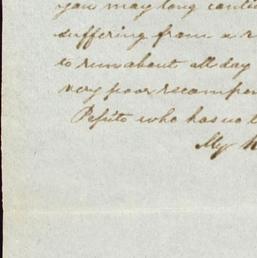 you may long conti
suffering from a r
to run about all day
very poor recompen
Pepito who has no t
My